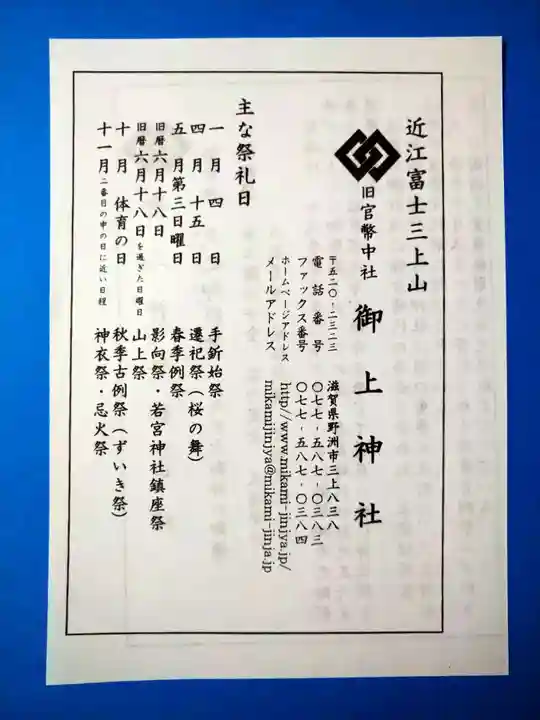 近江富士三上山
旧官幣中社 御上神社
〒五二〇‐二三二三 滋賀県野洲市三上八三八
電話番号 〇七七‐五八七‐〇三八三
ファックス番号 〇七七‐五八七‐〇三八四
ホームページアドレス http//www.mikami-jinjya.jp/
メールアドレス mikamijinjya@mikami-jinja.jp
主な祭礼日
一月四日 手斧始祭
四月十五日 遷祀祭(桜の舞)
五月第三日曜日 春季例祭
旧暦六月十八日 影向祭・若宮神社鎮座祭
旧暦六月十八日を過ぎた日曜日 山上祭
十月 体育の日 秋季古例祭(ずいき祭)
十一月二番目の申の日に近い日程 神衣祭・忌火祭